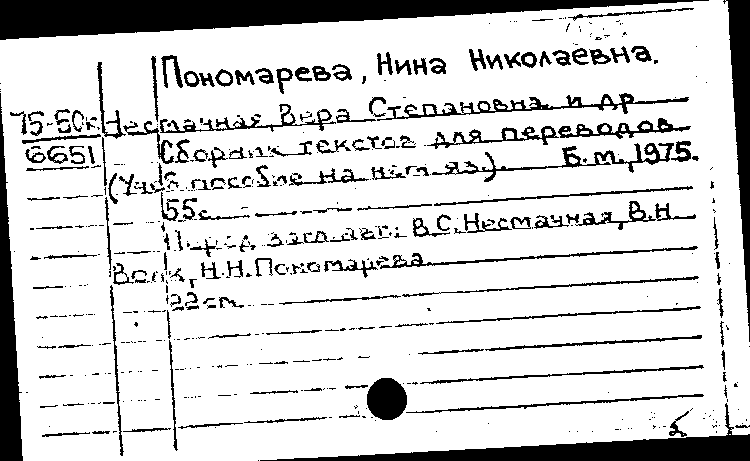 Пономарева, Нина Николаевна.
75-50к Несмачная, Вера Степановна и др
6651 Сборник текстов для переводов
(Учеб пособие на нем. яз.). Б.м., 1975.
55с.
Перед загл. авт.: В.С. Несмачная, В.Н.
Волк, Н.Н. Пономарева.
22см.